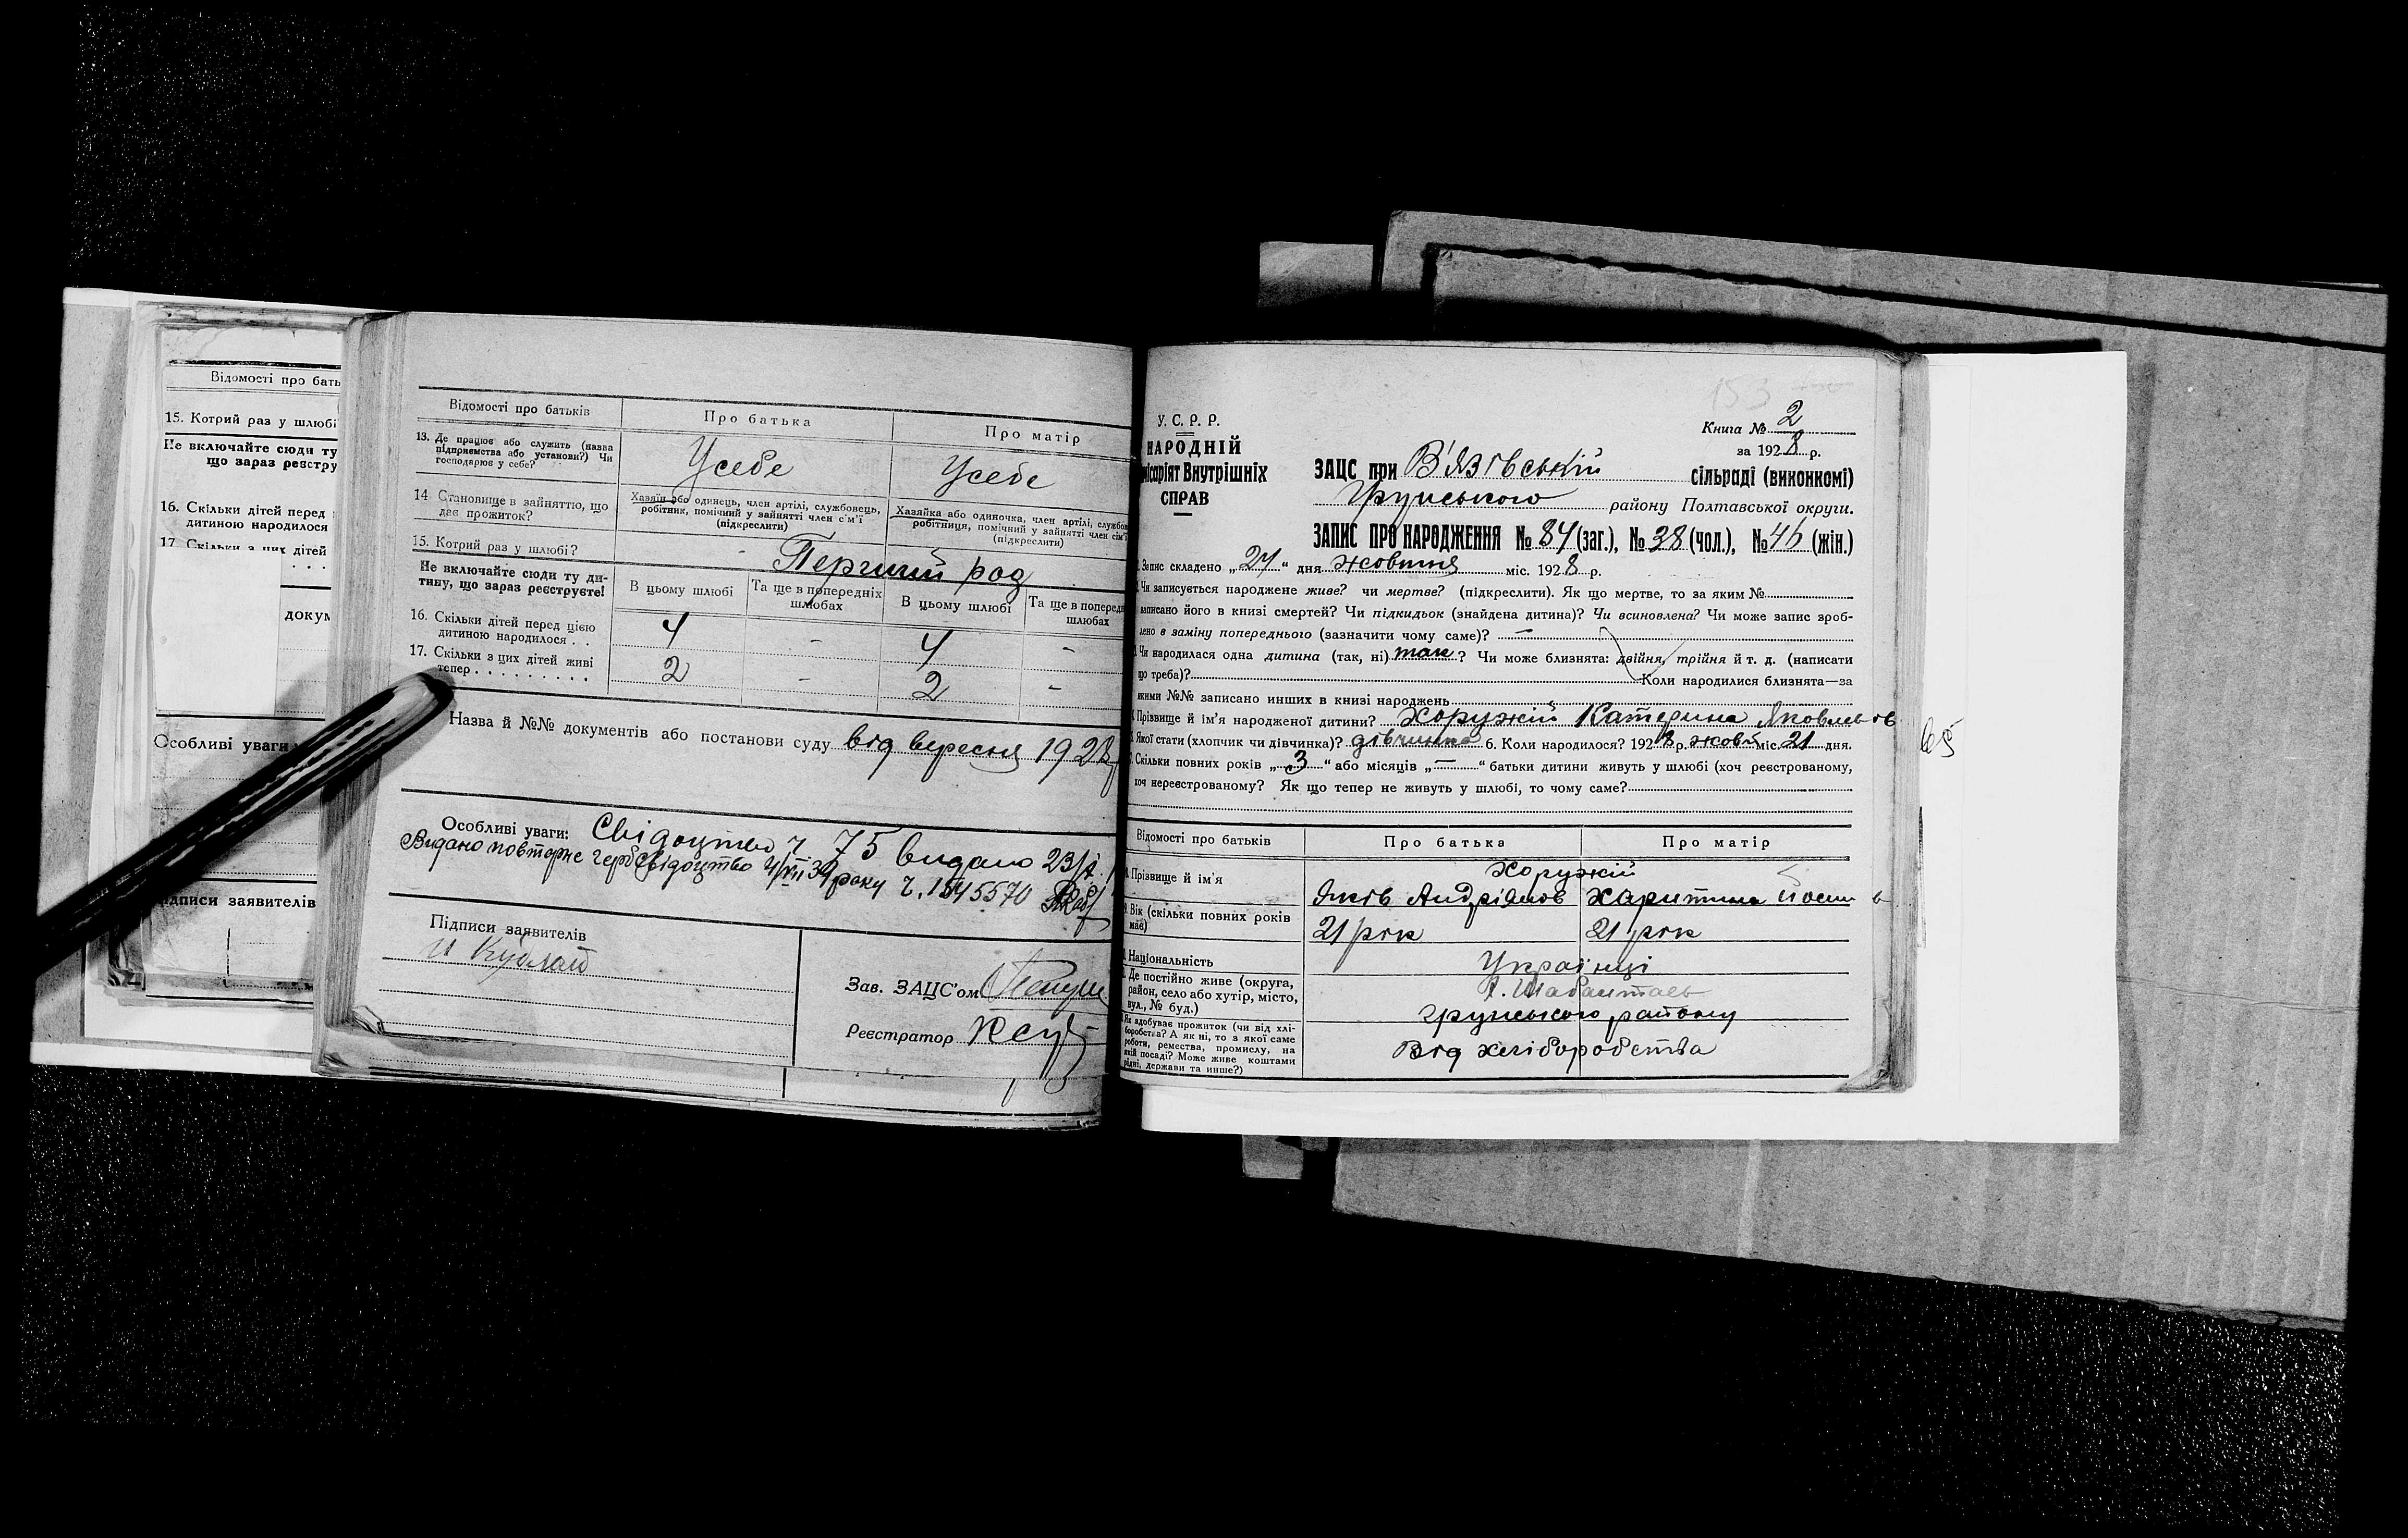 Відомості про бать
15. Котрий раз у шлюбі
Не включайте сюди ту
що зараз реєстру
16. Скільки дітей перед
дитиною народилося
17. Скільки з цих дітей
. . .
докум
Особливі уваги
Підписи заявителів
Відомості про батьків
Про батька
Про матір
13. Де працює або служить (назва
підприємства або установи?) Чи
господарює у себе?
Усебе
Усебе
14. Становище в зайняттю, що
дає прожиток?
Хазяїн або одинець, член артілі, службовець,
робітник, помічний у зайнятті член сім'ї
(підкреслити)
Хазяйка або одиночка, член артілі, службов
робітниця, помічний у зайнятті член сім'ї
(підкреслити)
15. Котрий раз у шлюбі?
Перший раз
Не включайте сюди ту ди-
тину, що зараз реєструєте!
В цьому шлюбі
Та ще в попередніх
шлюбах
В цьому шлюбі
Та ще в поперед
шлюбах
16. Скільки дітей перед цією
дитиною народилося . .
4 - 4 -
17. Скільки з цих дітей живі
тепер . . . . . . . . .
2 - 2 -
Назва й №№ документів або постанови суду від вересня 1928
Особливі уваги: Свідоцтво ч 75 видано 23/X.
Видано повторне герб Свідоцтво 4/VII 39 року ч. 1545570
Підписи заявителів
И Кублай
Зав. ЗАЦС'ом
Реєстратор
153
У. С. Р. Р.
НАРОДНІЙ
місаріят Внутрішніх
СПРАВ
Книга № 2
за 1928 р.
ЗАЦС при В'язівській сільраді (виконкомі)
Грунського району Полтавської округи.
ЗАПИС ПРО НАРОДЖЕННЯ № 84 (заг.), № 38 (чол.), № 46 (жін.)
Запис складено „24“ дня жовтня міс. 1928 р.
Чи записується народжене живе? чи мертве? (підкреслити). Як що мертве, то за яким №
записано його в книзі смертей? Чи підкидьок (знайдена дитина)? Чи всиновлена? Чи може запис зроб-
лено в заміну попереднього (зазначити чому саме)? —
Чи народилася одна дитина (так, ні) так? Чи може близнята: двійня, трійня й т. д. (написати
що треба)? Коли народилися близнята—за
якими №№ записано инших в книзі народжень
Прізвище й ім'я народженої дитини? Хоружій Катерина Яковлевів
Якої стати (хлопчик чи дівчинка)? дівчинка 6. Коли народилося? 1928 р. жовт міс. 21 дня.
Скільки повних років „3“ або місяців „—“ батьки дитини живуть у шлюбі (хоч реєстрованому,
хоч нереєстрованому? Як що тепер не живуть у шлюбі, то чому саме?
65
Відомості про батьків
Про батька
Про матір
Прізвище й ім'я
Хоружій
Яків Андріянов
Харитина Йосип в
Вік (скільки повних років
має)
21 рік
21 рік
Національність
Українці
Де постійно живе (округа,
район, село або хутір, місто,
вул., № буд.)
х. Шабантаєв
Грунського району
Як здобуває прожиток (чи від хлі-
боробства? А як ні, то з якої саме
роботи, ремества, промислу, на
якій посаді? Може живе коштами
рідні, держави та инше?)
Від хліборобства